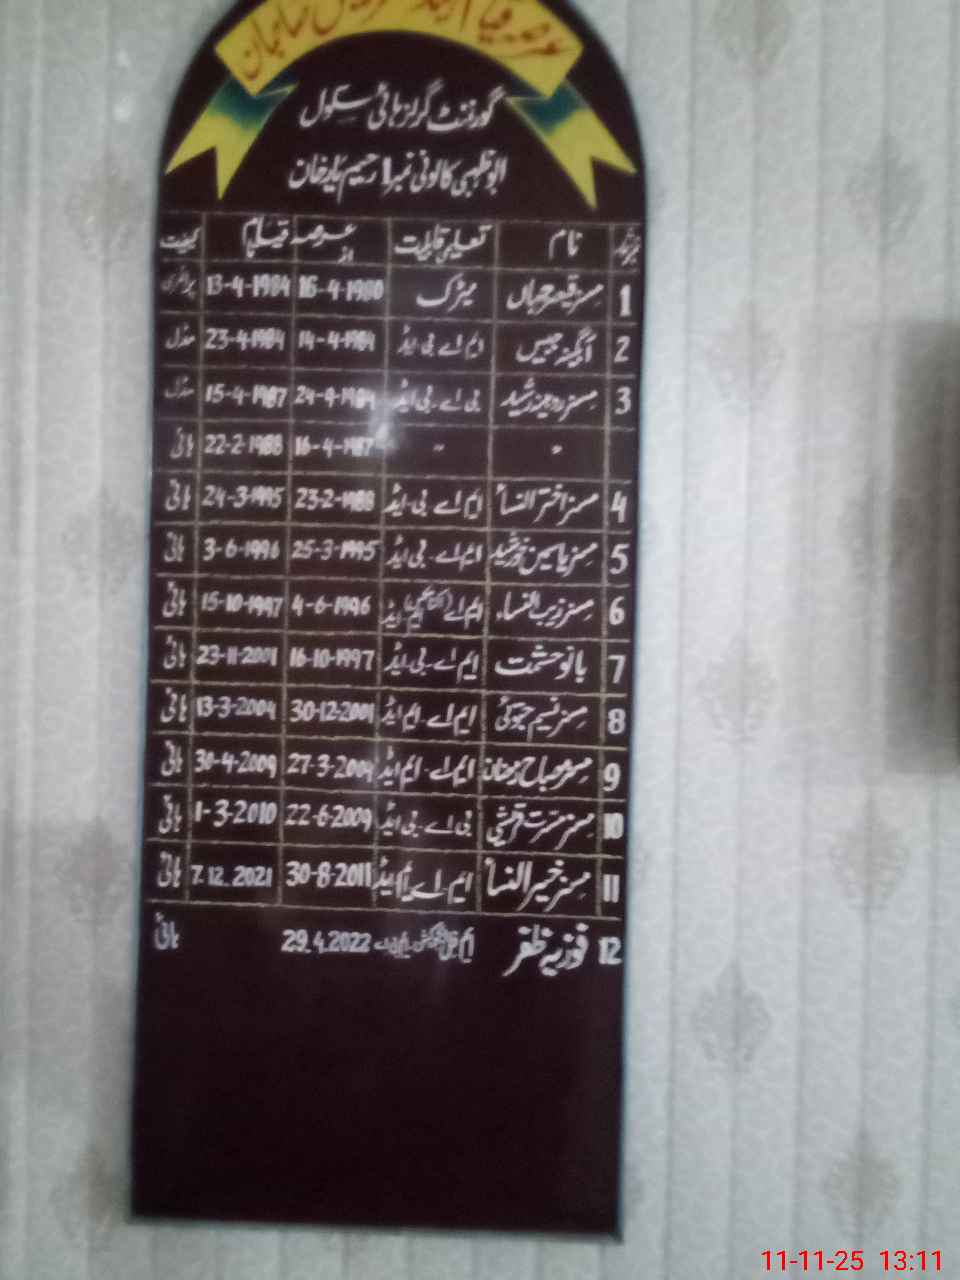 عرصہ قیام صاحبان
گورنمنٹ گرلز ہائی سکول
ابوظہبی کالونی نمبر 1 رحیم یار خان
نمبر شمار نام تعلیمی قابلیت عرصہ قیام کیفیت
از
1 مسز قیصر جہاں میٹرک 16-4-1980 13-4-1984 پرائمری
2 آبگینہ جبیں ایم اے بی ایڈ 14-4-1984 23-4-1984 مڈل
3 مسز روبینہ رشید بی اے۔بی ایڈ 24-9-1984 15-4-1987 مڈل
〃 〃 16-4-1987 22-2-1988 ہائی
4 مسز اختر النسأ ایم اے بی۔ایڈ 23-2-1988 24-3-1995 ہائی
5 مسز یاسمین خورشید ایم اے۔بی۔ایڈ 25-3-1995 3-6-1996 ہائی
6 مسز زیب النساء ایم اے ایم ایڈ 4-6-1996 15-10-1997 ہائی
7 بانو حشمت ایم اے۔بی۔ایڈ 16-10-1997 23-11-2001 ہائی
8 مسز نسیم ایم اے۔ایم ایڈ 30-12-2001 13-3-2004 ہائی
9 مسز مصباح ایم اے۔ایم ایڈ 27-3-2004 30-4-2009 ہائی
10 مسز مسرت قریشی بی اے۔بی ایڈ 22-6-2009 1-3-2010 ہائی
11 مسز خیر النسأ ایم۔اے ایم ایڈ 30-8-2011 7.12.2021 ہائی
12 فوزیہ ظفر 29.4.2022 ہائی
11-11-25 13:11